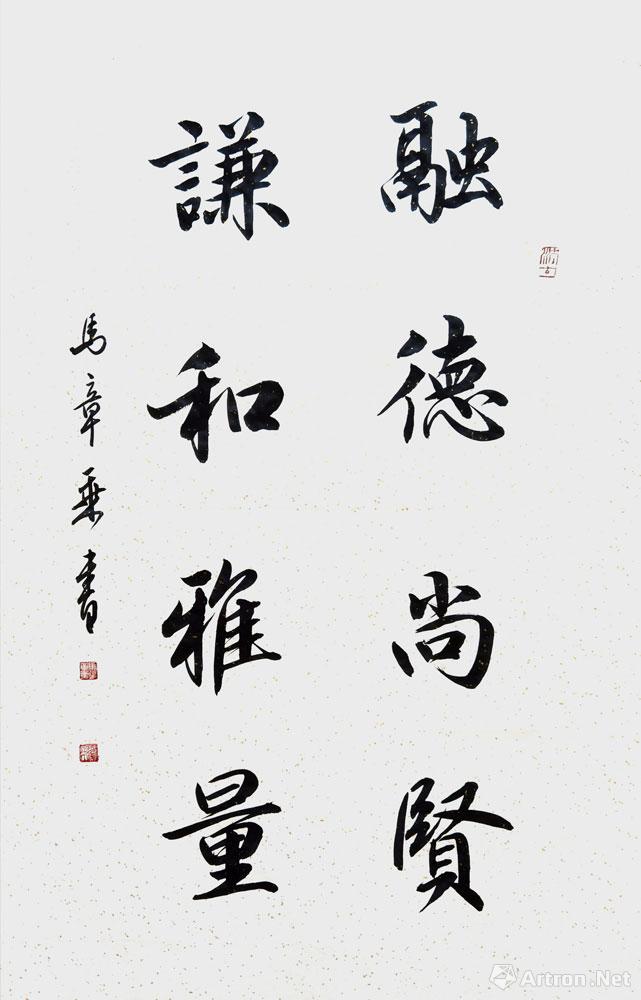 融德尚賢
謙和雅量
馬章乘書
Artron.Net